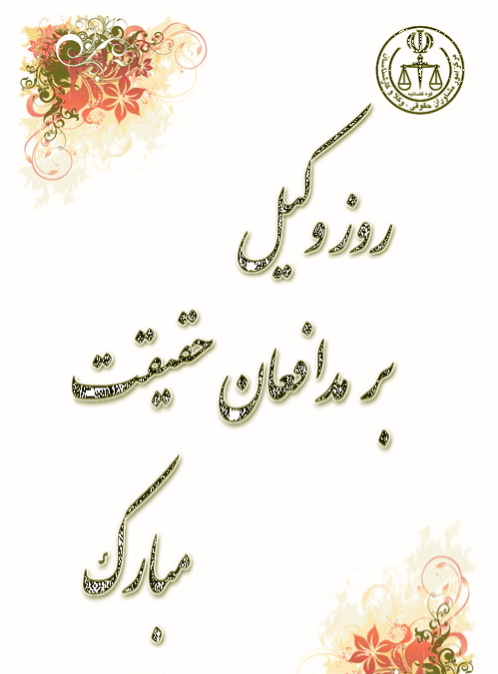 مرکز امور مشاوران حقوقی، وکلا و کارشناسان
قوه قضائیه
روز وکیل
بر مدافعان حقیقت
مبارک